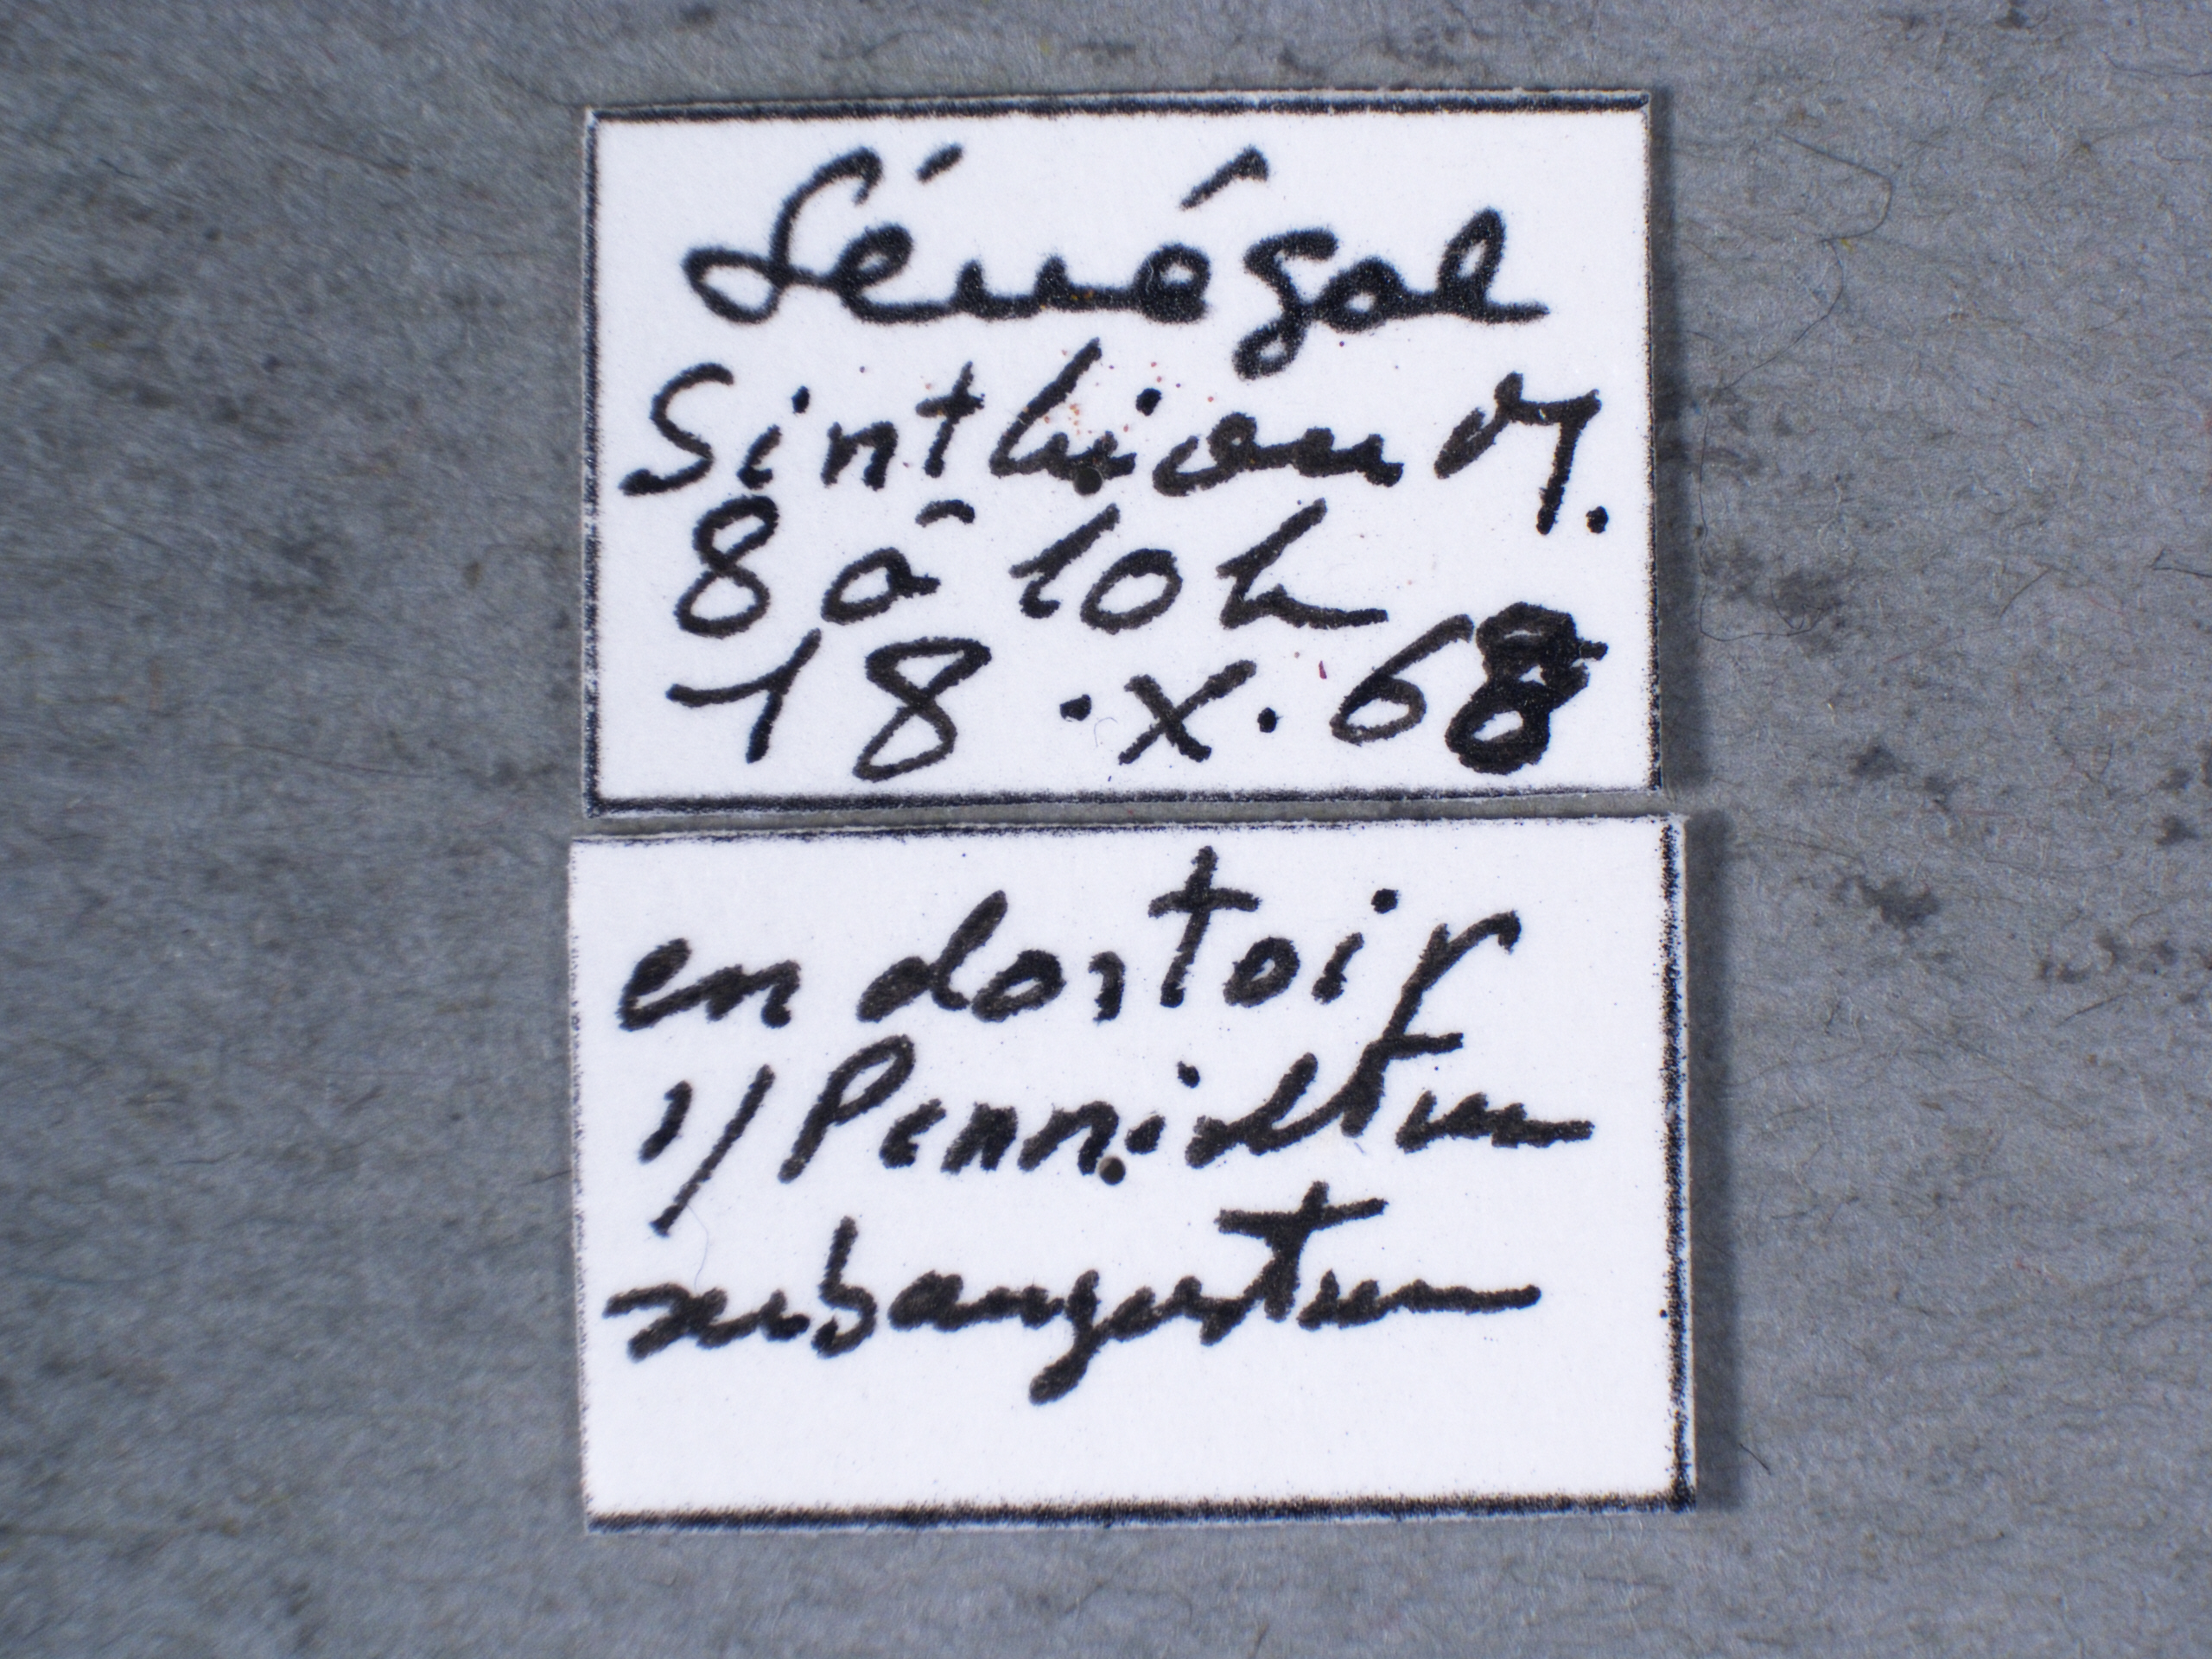 Sénégal
Sinthiou M.
8 à 10h
18.X.68
en dortoir
s/Pennisetum
subangustum